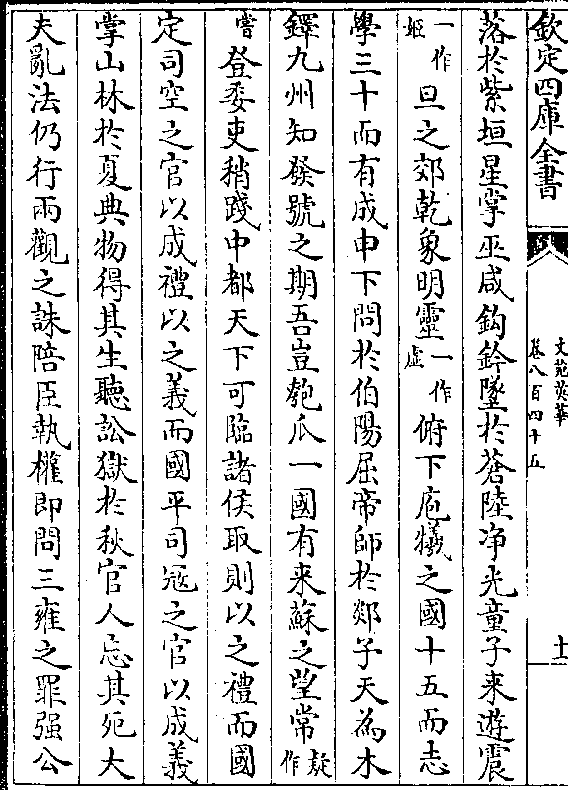 欽定四庫全書
文苑英華
卷八百四十五
十一
落於紫垣星掌巫咸鈎鈐墜於蒼陸浄光童子来遊震
一作姬旦之郊乾象明靈一作虚俯下庖犧之國十五而志
學三十而有成申下問於伯陽屈帝師於郯子天為木
鐸九州知發號之期吾豈匏瓜一國有来蘇之望常疑作
嘗登委吏稍踐中都天下可臨諸侯取則以之禮而國
定司空之官以成禮以之義而國平司冦之官以成義
掌山林於夏典物得其生聽訟獄於秋官人忘其死大
夫亂法仍行兩觀之誅陪臣執權即問三雍之罪强公